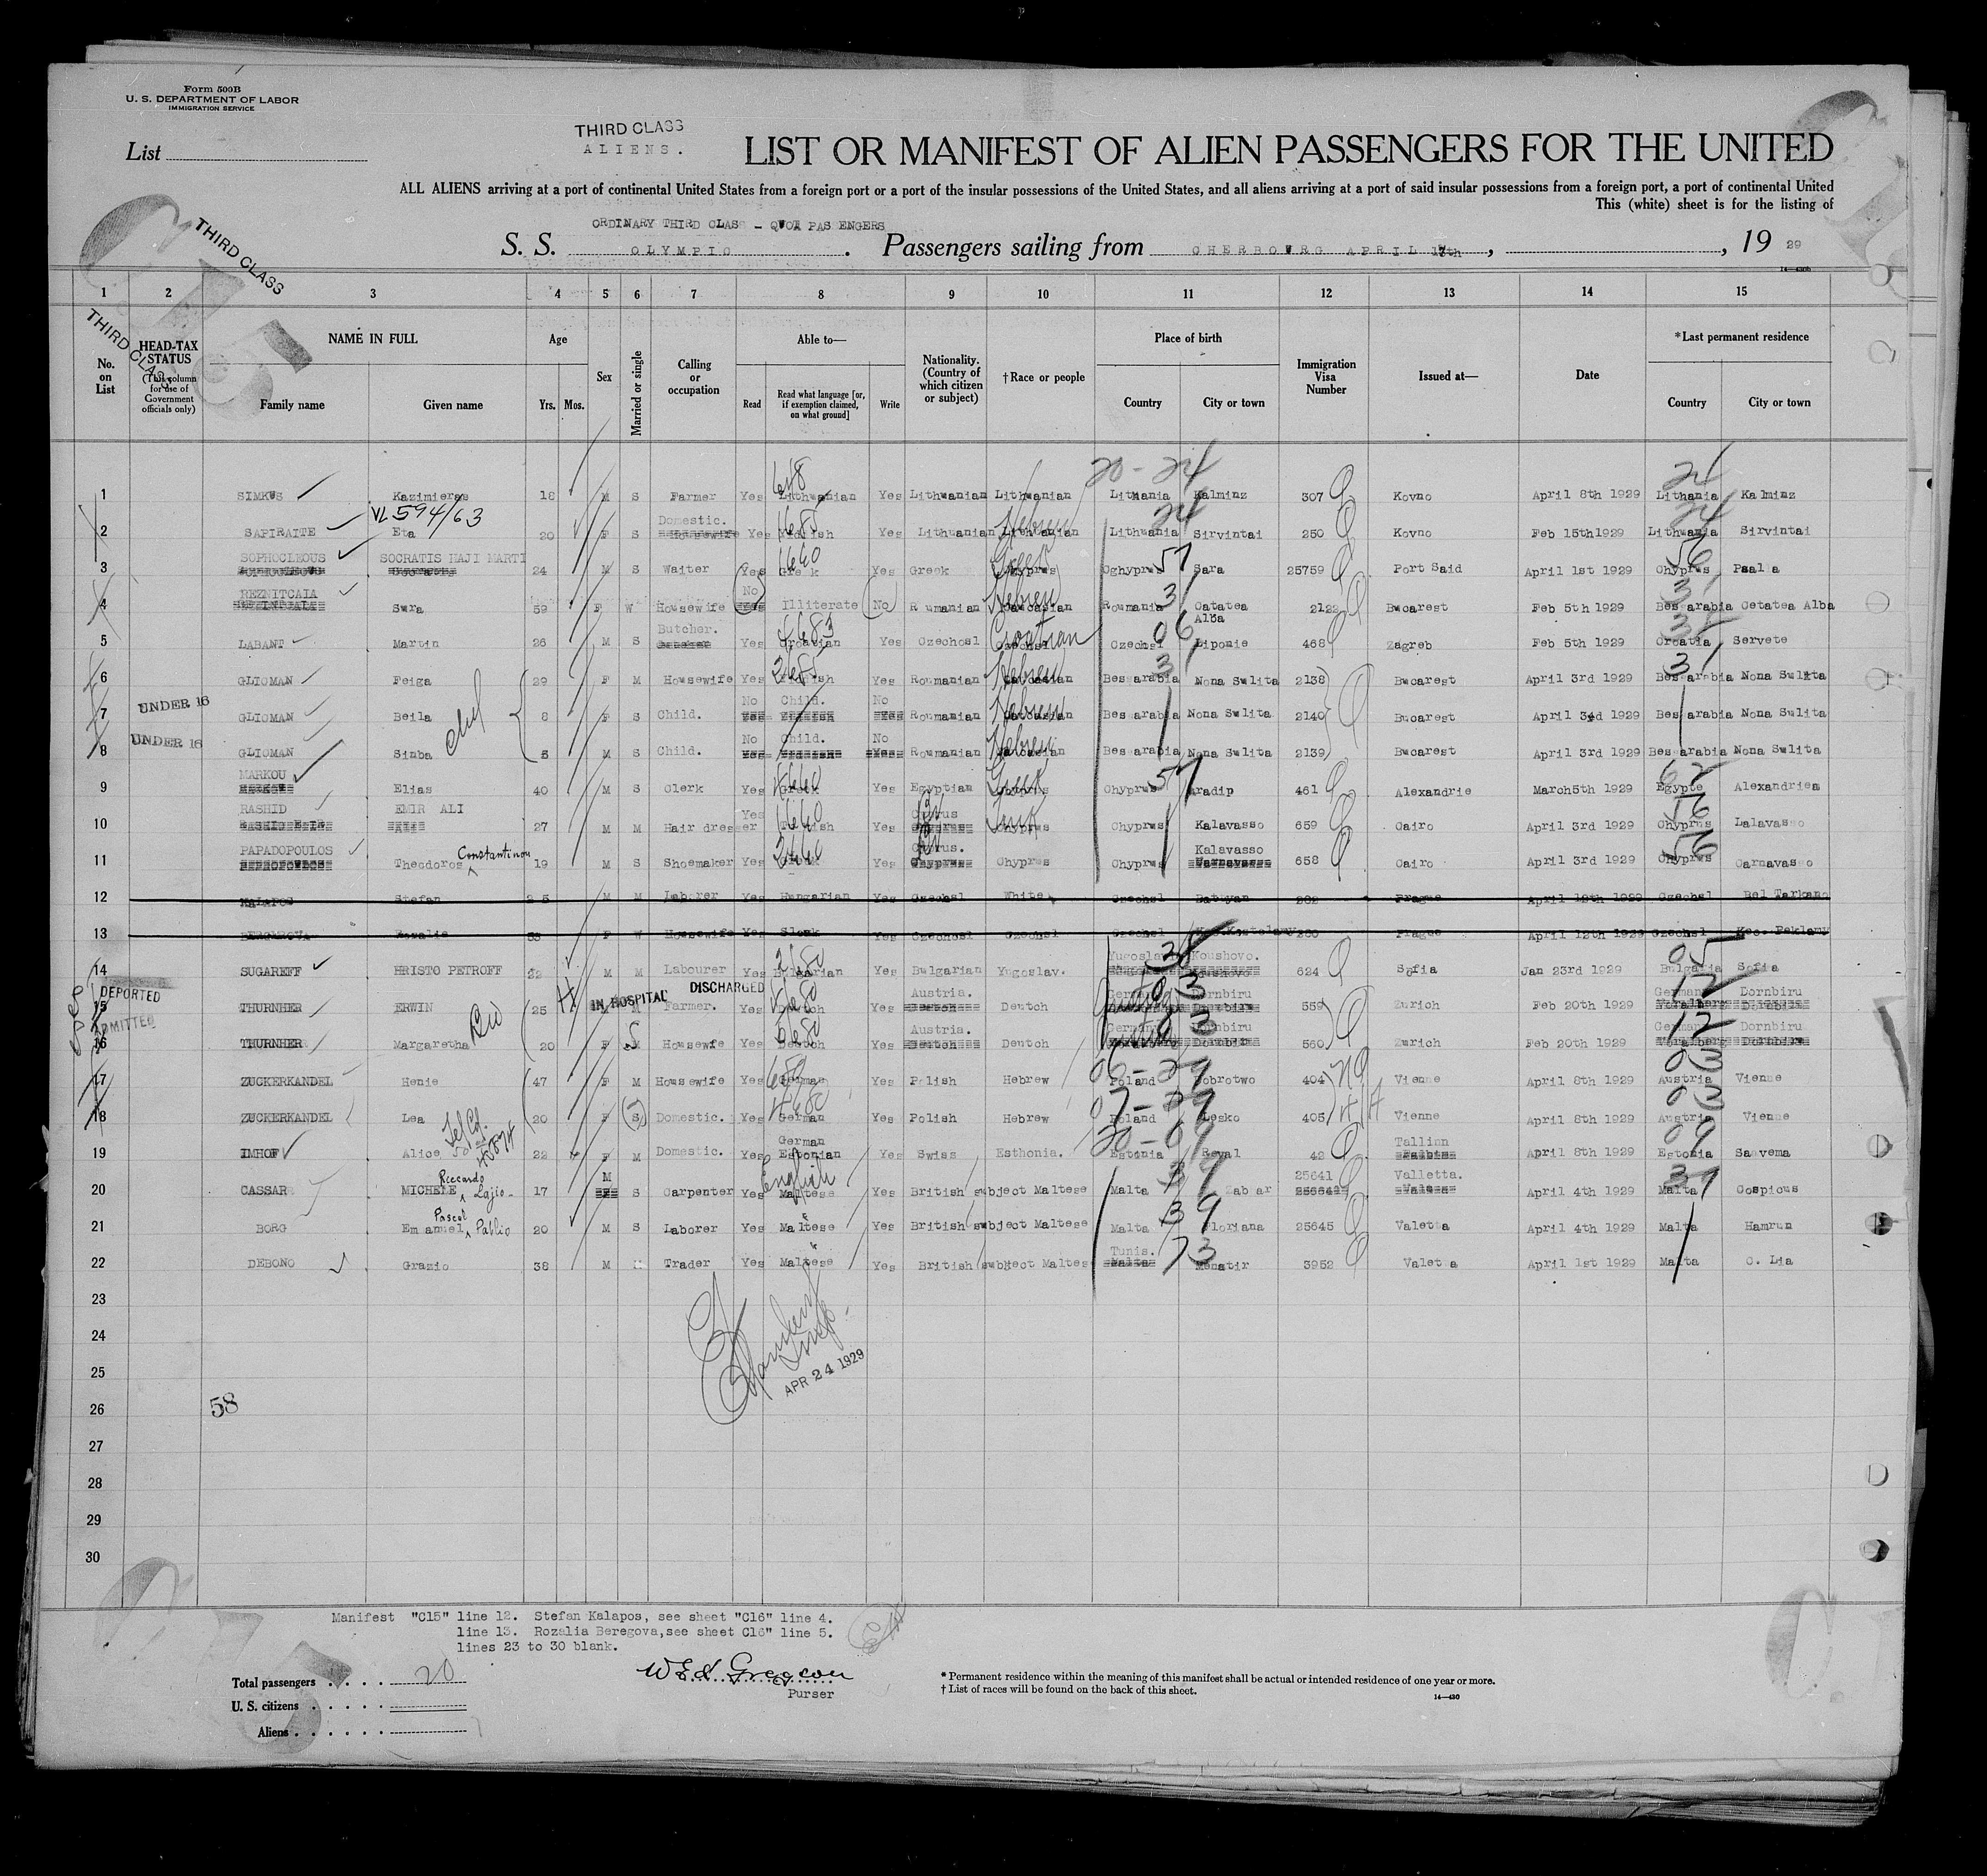 Form 500B
U. S. DEPARTMENT OF LABOR
IMMIGRATION SERVICE
List
THIRD CLASS
ALIENS.
LIST OR MANIFEST OF ALIEN PASSENGERS FOR THE UNITED
ALL ALIENS arriving at a port of continental United States from a foreign port or a port of the insular possessions of the United States, and all aliens arriving at a port of said insular possessions from a foreign port, a port of continental United
This (white) sheet is for the listing of
THIRD CLASS
ORDINARY THIRD CLASS - QUOTA PASSENGERS
S. S. OLYMPIC. Passengers sailing from CHERBOURG APRIL 17th, , 19 29
14-430b
1 2 3 4 5 6 7 8 9 10 11 12 13 14 15
THIRD CLASS
No. on List
HEAD-TAX STATUS (This column for use of Government officials only)
NAME IN FULL Family name Given name
Age Yrs. Mos.
Sex
Married or single
Calling or occupation
Able to— Read Read what language [or, if exemption claimed, on what ground] Write
Nationality. (Country of which citizen or subject)
†Race or people
Place of birth Country City or town
Immigration Visa Number
Issued at—
Date
*Last permanent residence Country City or town
20-24 24
1 SIMKUS Kazimieras 18 M S Farmer Yes Lithwanian Yes Lithwanian Lithwanian Lithania Kalminz 307 Kovno April 8th 1929 Lithania Kalminz
VL 594/63
2 SAPIRAITE Eta 20 F S Domestic. Housewife Yes Yidish Yes Lithwanian Lithwanian Hebrew Lithwania Sirvintai 250 Kovno Feb 15th1929 Lithwania Sirvintai
3 SOPHOCLEOUS SOCRATIS HAJI MARTI 24 M S Waiter Yes Greek Yes Greek Greek Oghyprus 57 Sara 25759 Port Said April 1st 1929 Chyprus 56 Psalia
4 REZNITCAIA Swra 59 F W Housewife (No) Illiterate (No) Roumanian Hebrew Roumania Catatea Alba 2122 Bucarest Feb 5th 1929 Bessarabia Cetatea Alba
5 LABANT Martin 26 M S Butcher. Yes Croatian Yes Czechosl Croatian Czechsl 06 Liponie 468 Zagreb Feb 5th 1929 Croatia Servete
6 GLIOMAN Feiga 29 F M Housewife Yes Yidish Yes Roumanian Hebrew Bessarabia Nona Swlita 2138 Bucarest April 3rd 1929 Bessarabia Nona Swlita
UNDER 16
7 GLIOMAN Beila 8 F S Child. No Child. No Roumanian Hebrew Bessarabia Nona Swlita 2140 Bucarest April 3rd 1929 Bessarabia Nona Swlita
UNDER 16
8 GLIOMAN Simba 5 M S Child. No Child. No Roumanian Hebrew Bessarabia Nona Swlita 2139 Bucarest April 3rd 1929 Bessarabia Nona Swlita
9 MARKOU Elias 40 M S Clerk Yes Greek Yes Egyptian Greek Chyprus 57 Aradip 461 Alexandrie March5th 1929 Egypte Alexandriea
10 RASHID EMIR ALI 27 M M Hair dresser Yes Turkish Yes Cyprus Turk Chyprus Kalavasso 659 Cairo April 3rd 1929 Chyprus 56 Lalavasso
11 PAPADOPOULOS Theodoros Constantinou 19 M S Shoemaker Yes Yes Cyprus. Chyprus Chyprus Kalavasso 658 Cairo April 3rd 1929 Chyprus 56 Carnavasso
12 KALAPOS Stefan 25 M M Laborer Yes Hungarian Yes Czechsl White Czechsl Batuyan 282 Prague April 12th 1929 Czechsl Bel Tarkano
13 BERGAROVA Rozalie F W Housewife Yes Slovk Yes Czechosl Czechsl Czechsl 280 Prague April 12th 1929 Czechsl Kec. Peklany
14 SUGAREFF HRISTO PETROFF 32 M M Labourer Yes Bulgarian Yes Bulgarian Yugoslav. Yugoslav Koushovo. 624 Sofia Jan 23rd 1929 Bulgaria 05 Sofia
DEPORTED IN HOSPITAL DISCHARGED
15 THURNHER ERWIN 25 M M Farmer. Yes Deutch Yes Austria. Deutch Germany Dornbiru 559 Zurich Feb 20th 1929 Germany 12 Dornbiru
ADMITTED
16 THURNHER Margaretha 20 F S Housewfe Yes Deutch Yes Austria. Deutch Germany Dornbiru 560 Zurich Feb 20th 1929 Germany 12 Dornbiru
17 ZUCKERKANDEL Henie 47 F M Housewife Yes German Yes Polish Hebrew Poland Dobrotwo 404 Vienne April 8th 1929 Austria 03 Vienne
18 ZUCKERKANDEL Lea 20 F (S) Domestic. Yes German Yes Polish Hebrew Poland Lesko 405 Vienne April 8th 1929 Austria 03 Vienne
19 IMHOF Alice 22 F M Domestic. Yes German Estonian Yes Swiss Esthonia. Estonia Reval 42 Tallinn April 8th 1929 Estonia 09 Saavema
20 CASSAR MICHELE Riccardo Lajio 17 M S Carpenter Yes English Maltese Yes British subject Maltese Malta 39 Zabar 25641 Valletta. April 4th 1929 Malta 39 Cospicus
21 BORG Emanuel Pascal Pablio 20 M S Laborer Yes Maltese Yes British subject Maltese Malta 39 Floriana 25645 Valetta April 4th 1929 Malta Hamrun
22 DEBONO Grazio 38 M M Trader Yes Maltese Yes British subject Maltese Tunis. 73 Menatir 3952 Valetta April 1st 1929 Malta C. Lia
23
24
25
APR 24 1929
26
58
27
28
29
30
Manifest "C15" line 12. Stefan Kalapos, see sheet "C16" line 4.
line 13. Rozalia Beregova,see sheet C16" line 5.
lines 23 to 30 blank.
Total passengers . . . . 20
U. S. citizens . . . . .
Aliens . . . . . .
Purser
* Permanent residence within the meaning of this manifest shall be actual or intended residence of one year or more.
† List of races will be found on the back of this sheet.
14-430